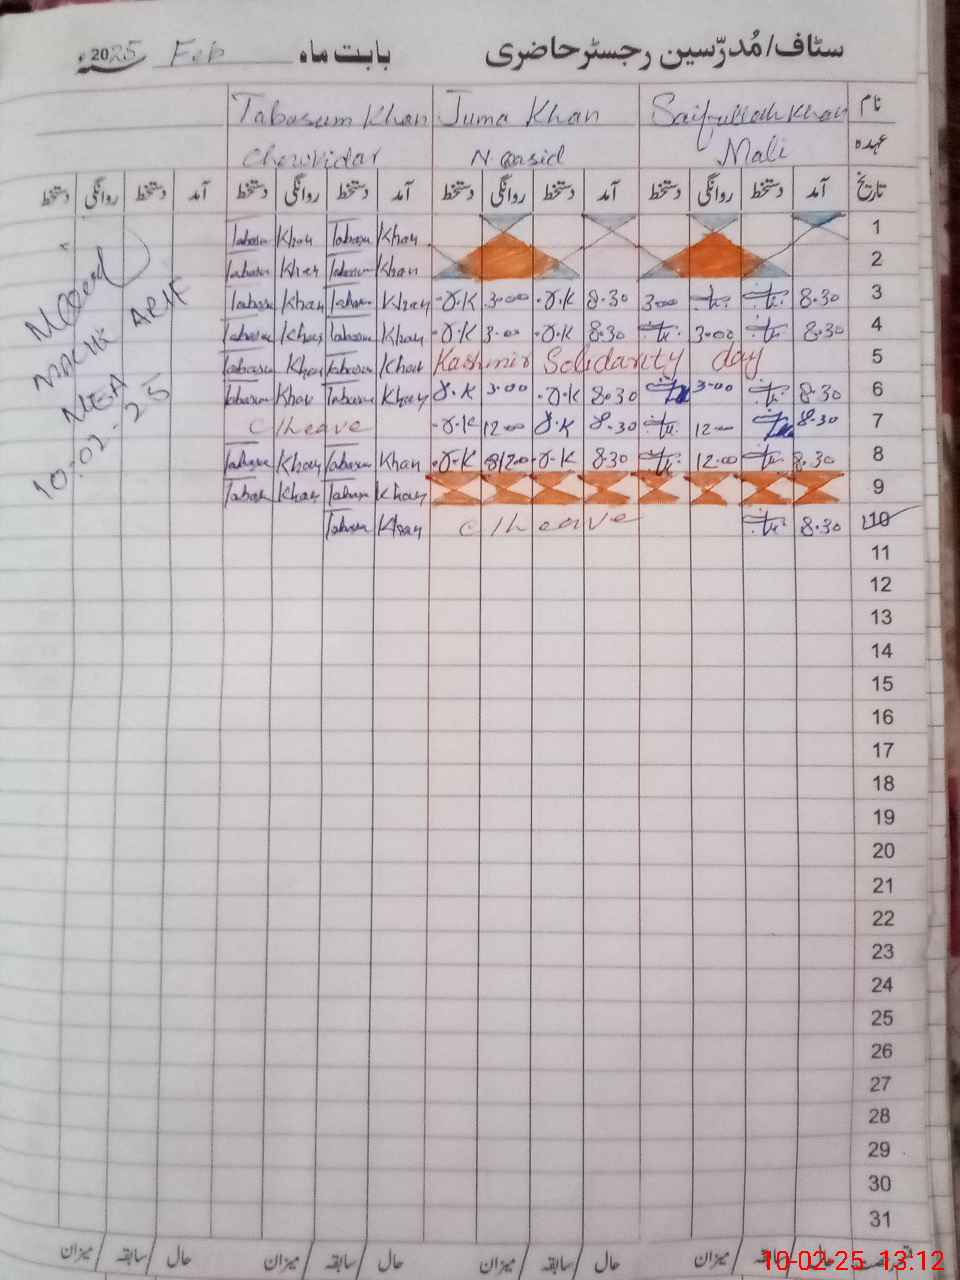 سٹاف/مُدرّسین رجسٹر حاضری بابت ماہ Feb 2025ء
نام Saifullah Khan Juma Khan Tabasum Khan
عہدہ Mali N.Qasid Chowkidar
تاریخ آمد دستخط روانگی دستخط آمد دستخط روانگی دستخط آمد دستخط روانگی دستخط آمد دستخط روانگی دستخط
1 Tabasum Khan Tabasum Khan
2 Tabasum Khan Tabasum Khan
3 Tabasum Khan Tabasum Khan J.K 3.00 J.K 8.30 3.00 8.30
4 Tabasum Khan Tabasum Khan J.K 3.00 J.K 8.30 3.00 8.30
5 Tabasum Khan Tabasum Khan Kashmir Solidarity day
6 Tabasum Khan Tabasum Khan J.K 3.00 J.K 8.30 3.00 8.30
7 C/Leave J.K 12.00 J.K 8.30 12.00 8.30
8 Tabasum Khan Tabasum Khan J.K 12.00 J.K 8.30 12.00 8.30
9 Tabasum Khan Tabasum Khan
10 Tabasum Khan C/Leave 8.30
11
12
13
14
15
16
17
18
19
20
21
22
23
24
25
26
27
28
29
30
31
MALIK ARIF
MEA
10.02.25
حال سابقہ میزان حال سابقہ میزان حال سابقہ میزان حال سابقہ میزان
10-02-25 13:12